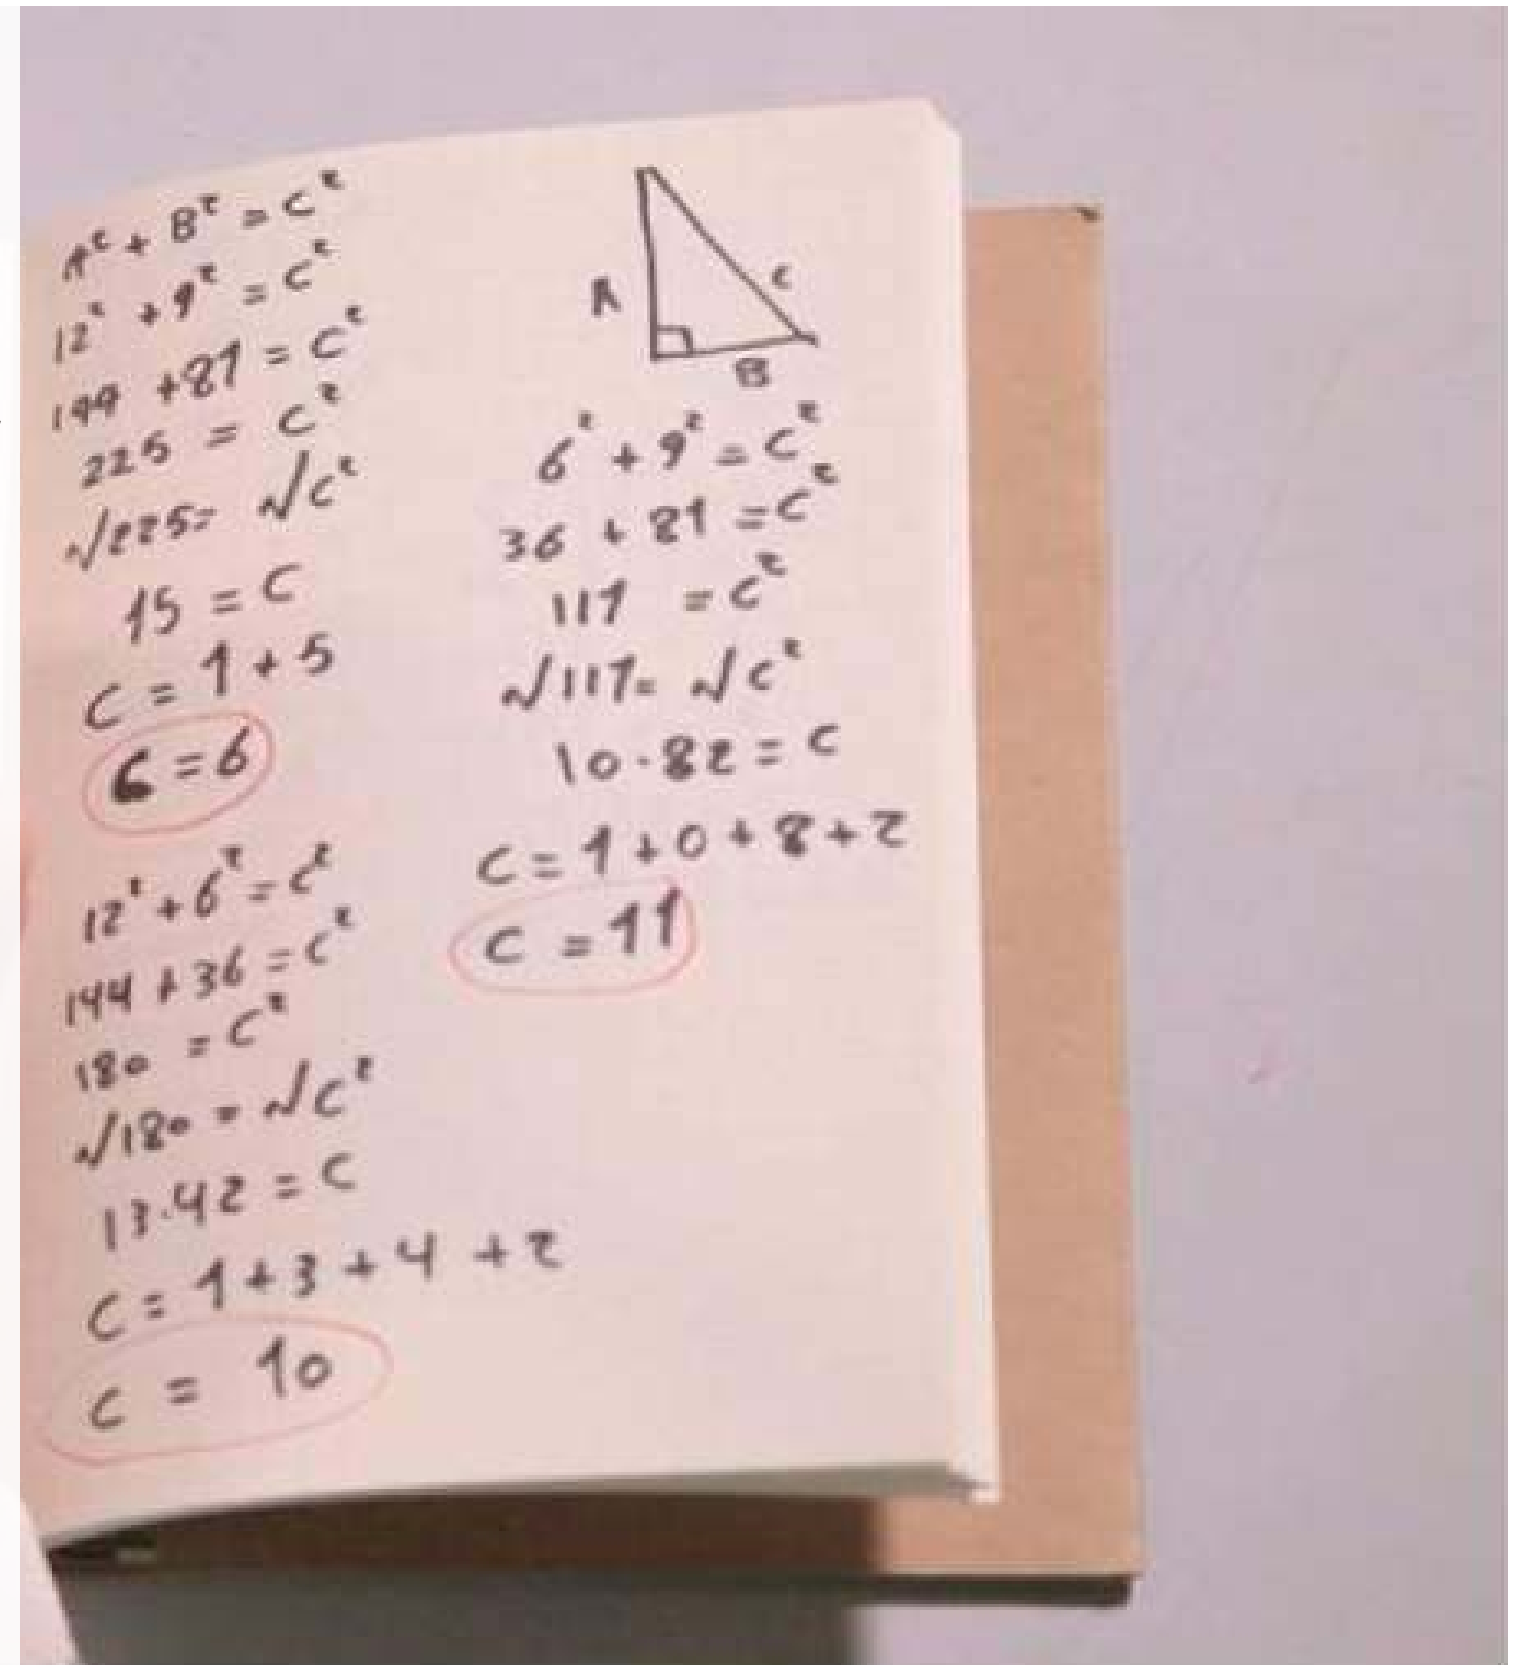 A² + B² = C²
12² + 9² = C²
144 + 81 = C²
225 = C²
√225 = √C²
15 = C
C = 1 + 5
6 = 6
12² + 6² = C²
144 + 36 = C²
180 = C²
√180 = √C²
13.42 = C
C = 1 + 3 + 4 + 2
C = 10
A
C
B
6² + 9² = C²
36 + 81 = C²
117 = C²
√117 = √C²
10.82 = C
C = 1 + 0 + 8 + 2
C = 11